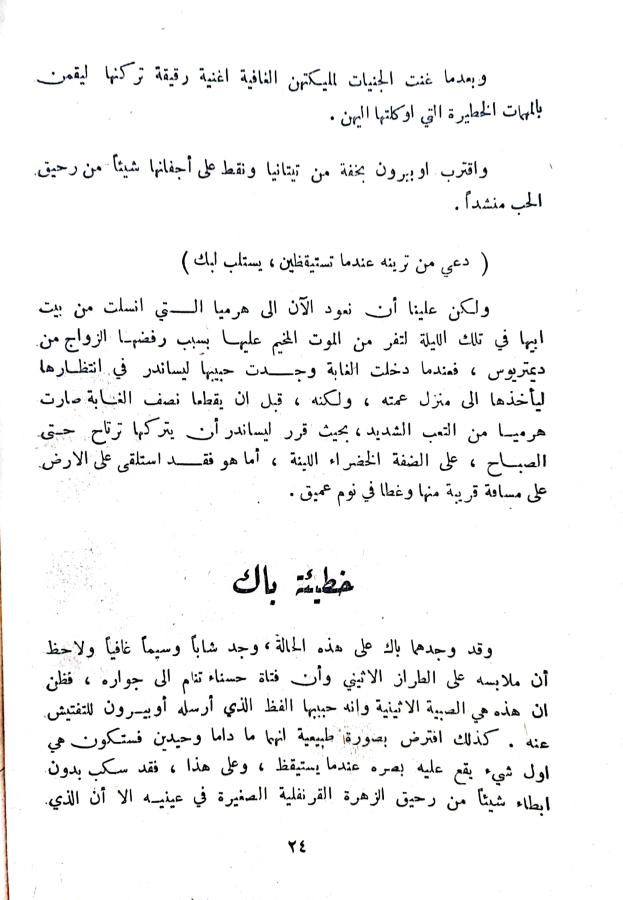 وبعدما غنت الجنيات لمليكتهن الغافية اغنية رقيقة تركنها ليقمن
بالمهات الخطيرة التي اوكلتها اليهن .
واقترب اوبيرون بخفة من تيتانيا ونقط على أجفانها شيئاً من رحيق
الحب منشداً .
( دعي من ترينه عندما تستيقظين ، يستلب لبك )
ولكن علينا أن نعود الآن الى هرميا التي انسلت من بيت
ابيها في تلك الليلة لتفر من الموت المخيم عليها بسبب رفضها الزواج من
ديمتريوس ، فعندما دخلت الغابة وجدت حبيبها ليساندر في انتظارها
ليأخذها الى منزل عمته ، ولكنه ، قبل ان يقطعا نصف الغابة صارت
هرميا من التعب الشديد ، بحيث قرر ليساندر أن يتركها ترتاح حتى
الصباح ، على الضفة الخضراء اللينة ، أما هو فقد استلقى على الارض
على مسافة قريبة منها وغطا في نوم عميق .
خطيئة باك
وقد وجدهما باك على هذه الحالة ، وجد شاباً وسيماً غافياً ولاحظ
أن ملابسه على الطراز الاثيني وأن فتاة حسناء تنام الى جواره ، فظن
ان هذه هي الصبية الاثينية وانه حبيبها الفظ الذي أرسله أوبيرون للتفتيش
عنه . كذلك افترض بصورة طبيعية انهما ما داما وحيدين فستكون هي
اول شيء يقع عليه بصره عندما يستيقظ ، وعلى هذا ، فقد سكب بدون
ابطاء شيئاً من رحيق الزهرة القرنفلية الصغيرة في عينيه الا أن الذي
٢٤